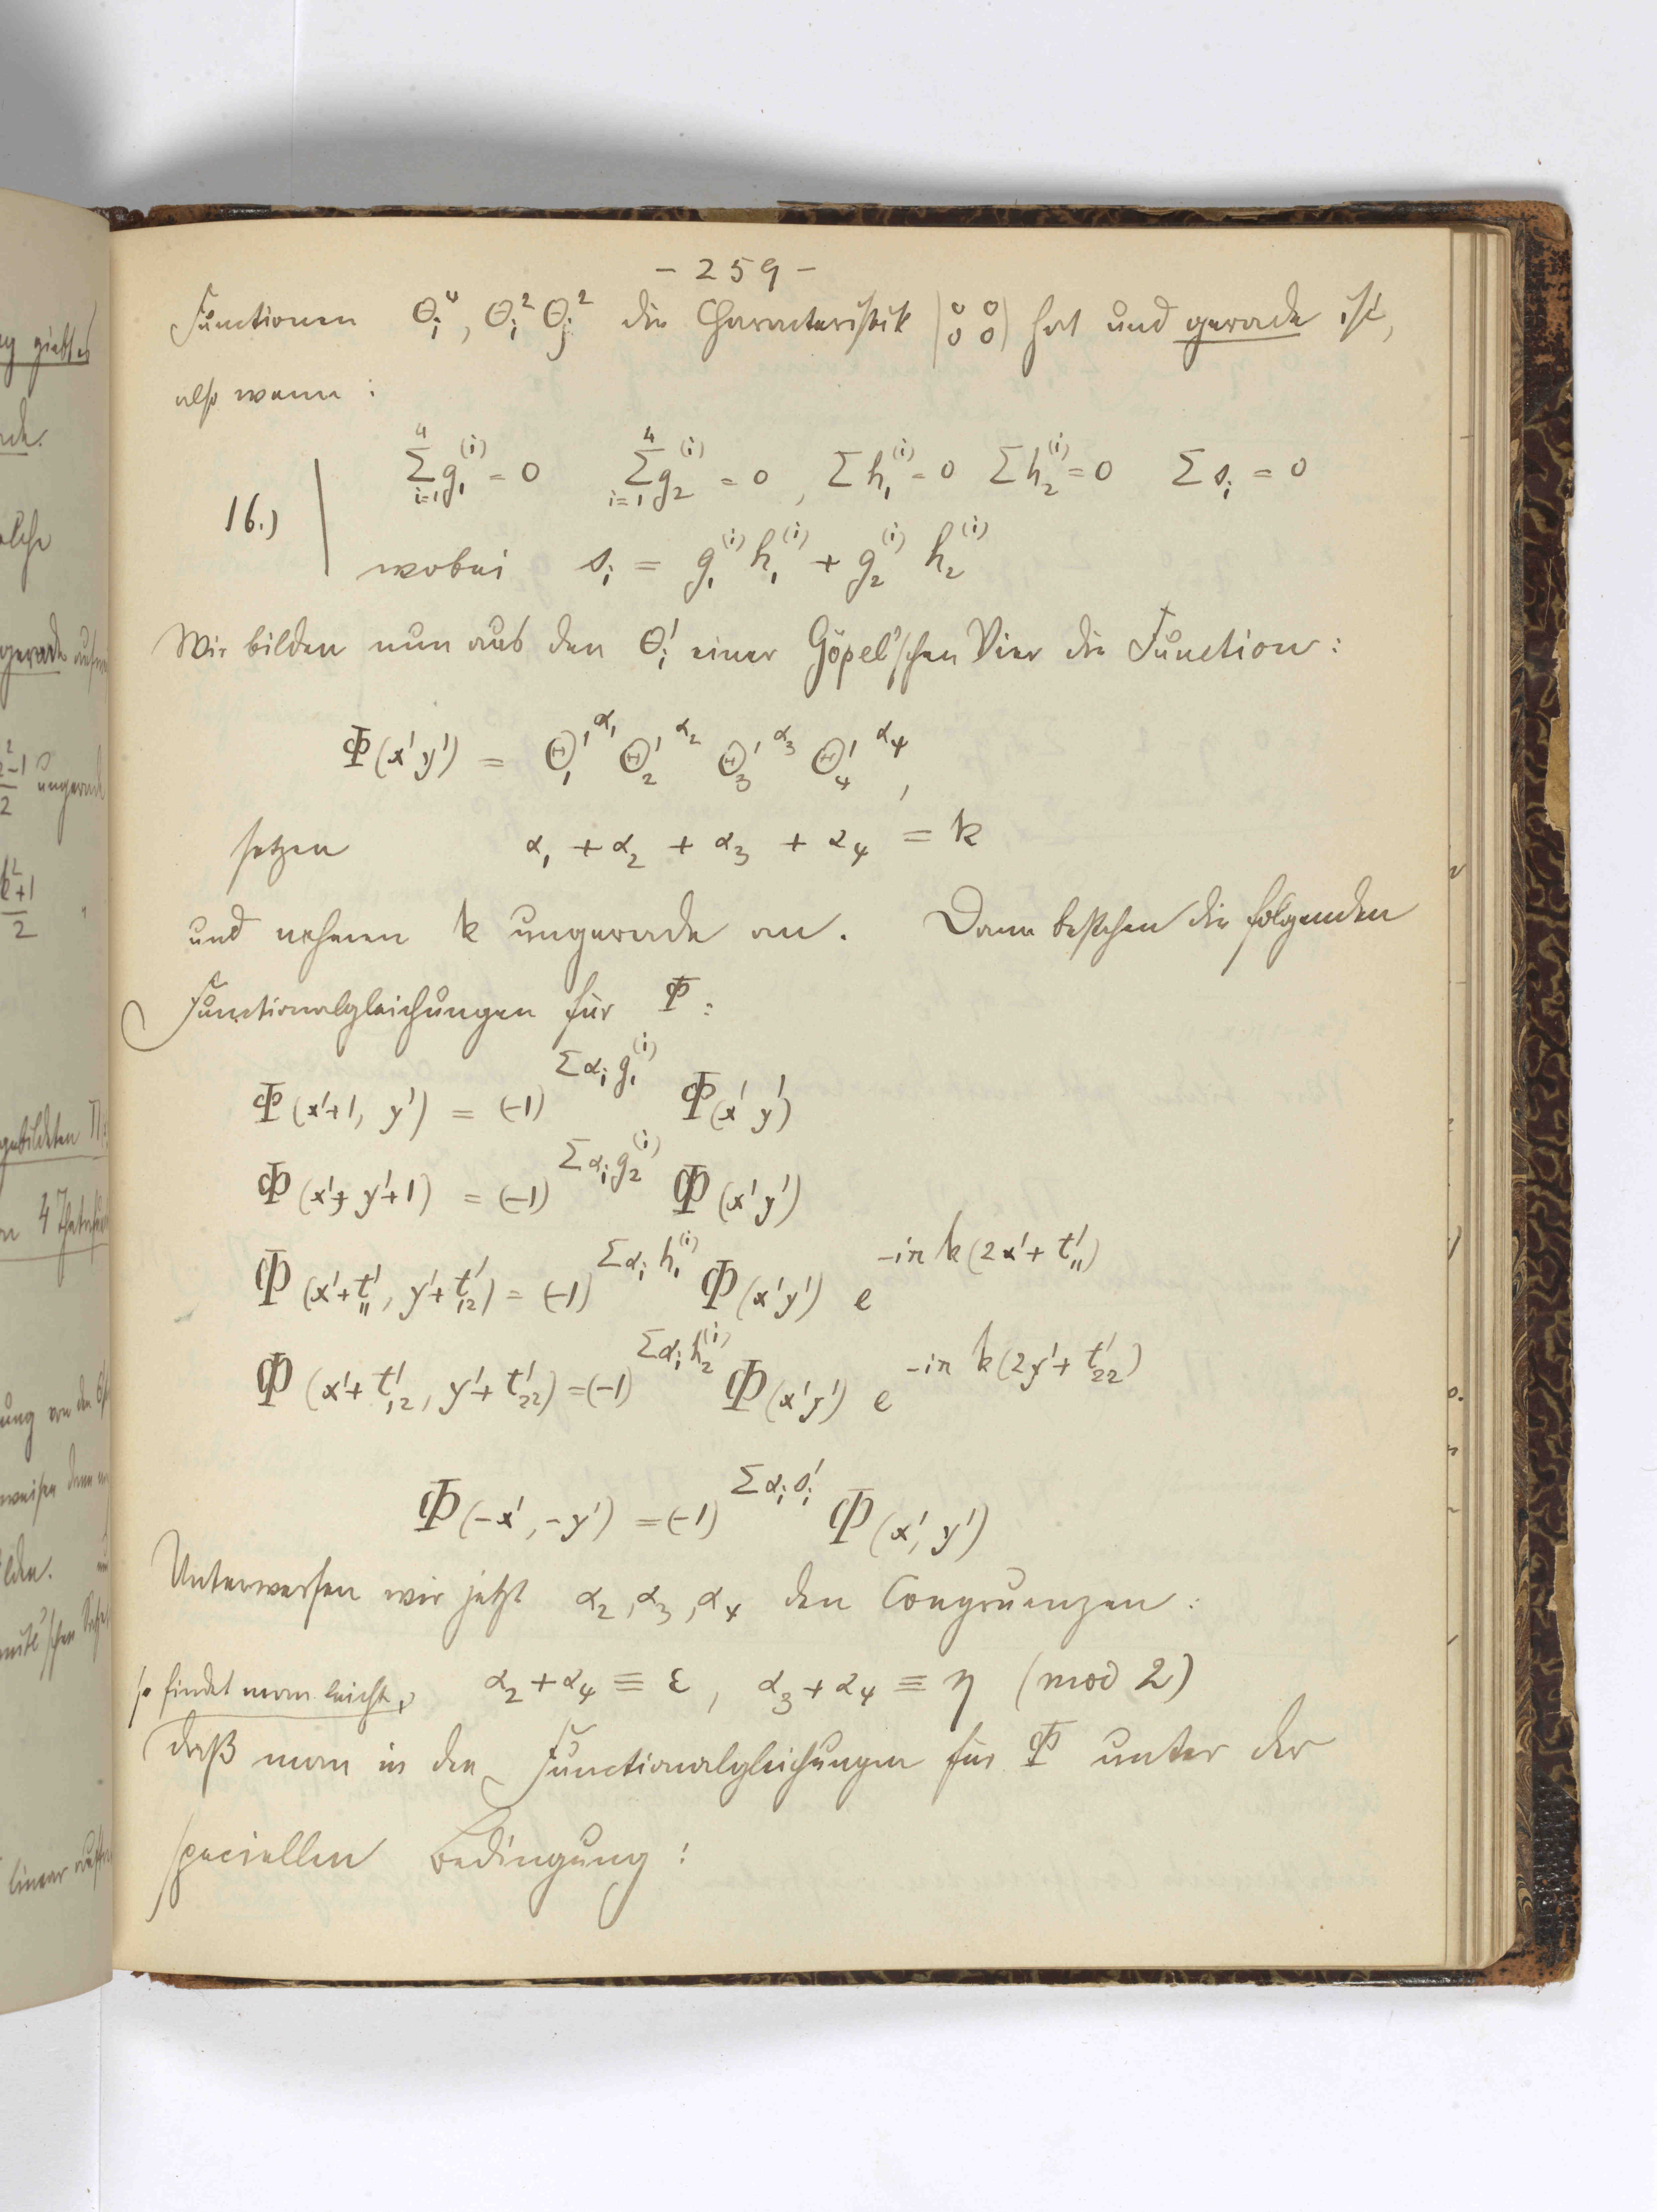 - 259 -
Functionen Θᵢ⁴, Θᵢ² Θⱼ² die Characteristik |0 0 / 0 0| hat und gerade ist,
also wenn :
16.) ∑_{i=1}^{4} g₁⁽ⁱ⁾ = 0 ∑_{i=1}^{4} g₂⁽ⁱ⁾ = 0 , ∑ h₁⁽ⁱ⁾ = 0 ∑ h₂⁽ⁱ⁾ = 0 ∑ sᵢ = 0
wobei sᵢ = g₁⁽ⁱ⁾ h₁⁽ⁱ⁾ + g₂⁽ⁱ⁾ h₂⁽ⁱ⁾
Wir bilden nun aus den Θᵢ' einer Göpel'schen Vier die Function :
Φ(x' y') = Θ₁'^{α₁} Θ₂'^{α₂} Θ₃'^{α₃} Θ₄'^{α₄} ,
setzen α₁ + α₂ + α₃ + α₄ = k
und nehmen k ungerade an. Dann bestehen die folgenden
Functionalgleichungen für Φ :
Φ(x'+1, y') = (-1)^{∑αᵢ g₁⁽ⁱ⁾} Φ(x' y')
Φ(x', y'+1) = (-1)^{∑αᵢ g₂⁽ⁱ⁾} Φ(x' y')
Φ(x'+t₁₁', y'+t₁₂') = (-1)^{∑αᵢ h₁⁽ⁱ⁾} Φ(x' y') e^{-iπ k(2x'+t₁₁')}
Φ(x'+t₁₂', y'+t₂₂') = (-1)^{∑αᵢ h₂⁽ⁱ⁾} Φ(x' y') e^{-iπ k(2y'+t₂₂')}
Φ(-x', -y') = (-1)^{∑αᵢ sᵢ'} Φ(x', y')
Unterwerfen wir jetzt α₂, α₃, α₄ den Congruenzen :
α₂ + α₄ ≡ ε , α₃ + α₄ ≡ η (mod 2)
so findet man leicht,
daß man in den Functionalgleichungen für Φ unter der
speciellen Bedingung :